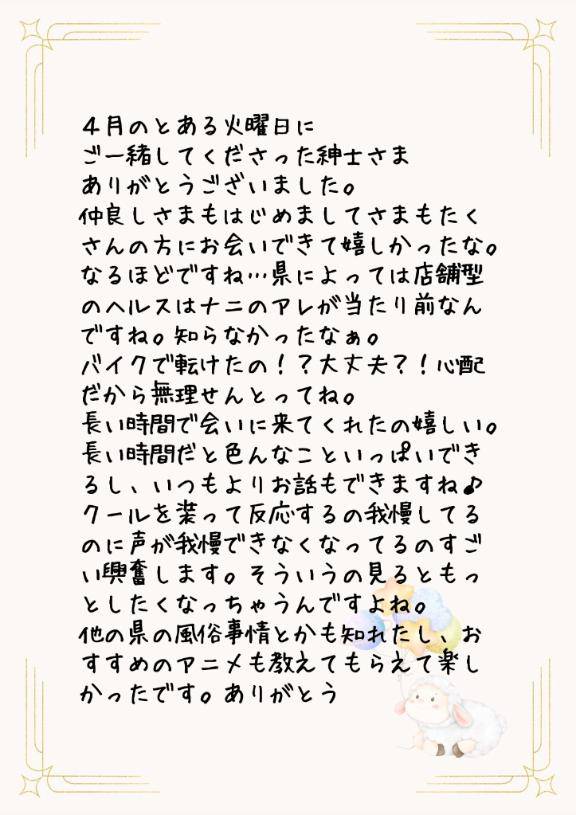 ４月のとある火曜日に
ご一緒してくださった紳士さま
ありがとうございました。
仲良しさまもはじめましてさまもたく
さんの方にお会いできて嬉しかったな。
なるほどですね…県によっては店舗型
のヘルスはナニのアレが当たり前なん
ですね。知らなかったなぁ。
バイクで転けたの！？大丈夫？！心配
だから無理せんとってね。
長い時間で会いに来てくれたの嬉しい。
長い時間だと色んなこといっぱいでき
るし、いつもよりお話もできますね♪
クールを装って反応するの我慢してる
のに声が我慢できなくなってるのすご
い興奮します。そういうの見るともっ
としたくなっちゃうんですよね。
他の県の風俗事情とかも知れたし、お
すすめのアニメも教えてもらえて楽し
かったです。ありがとう